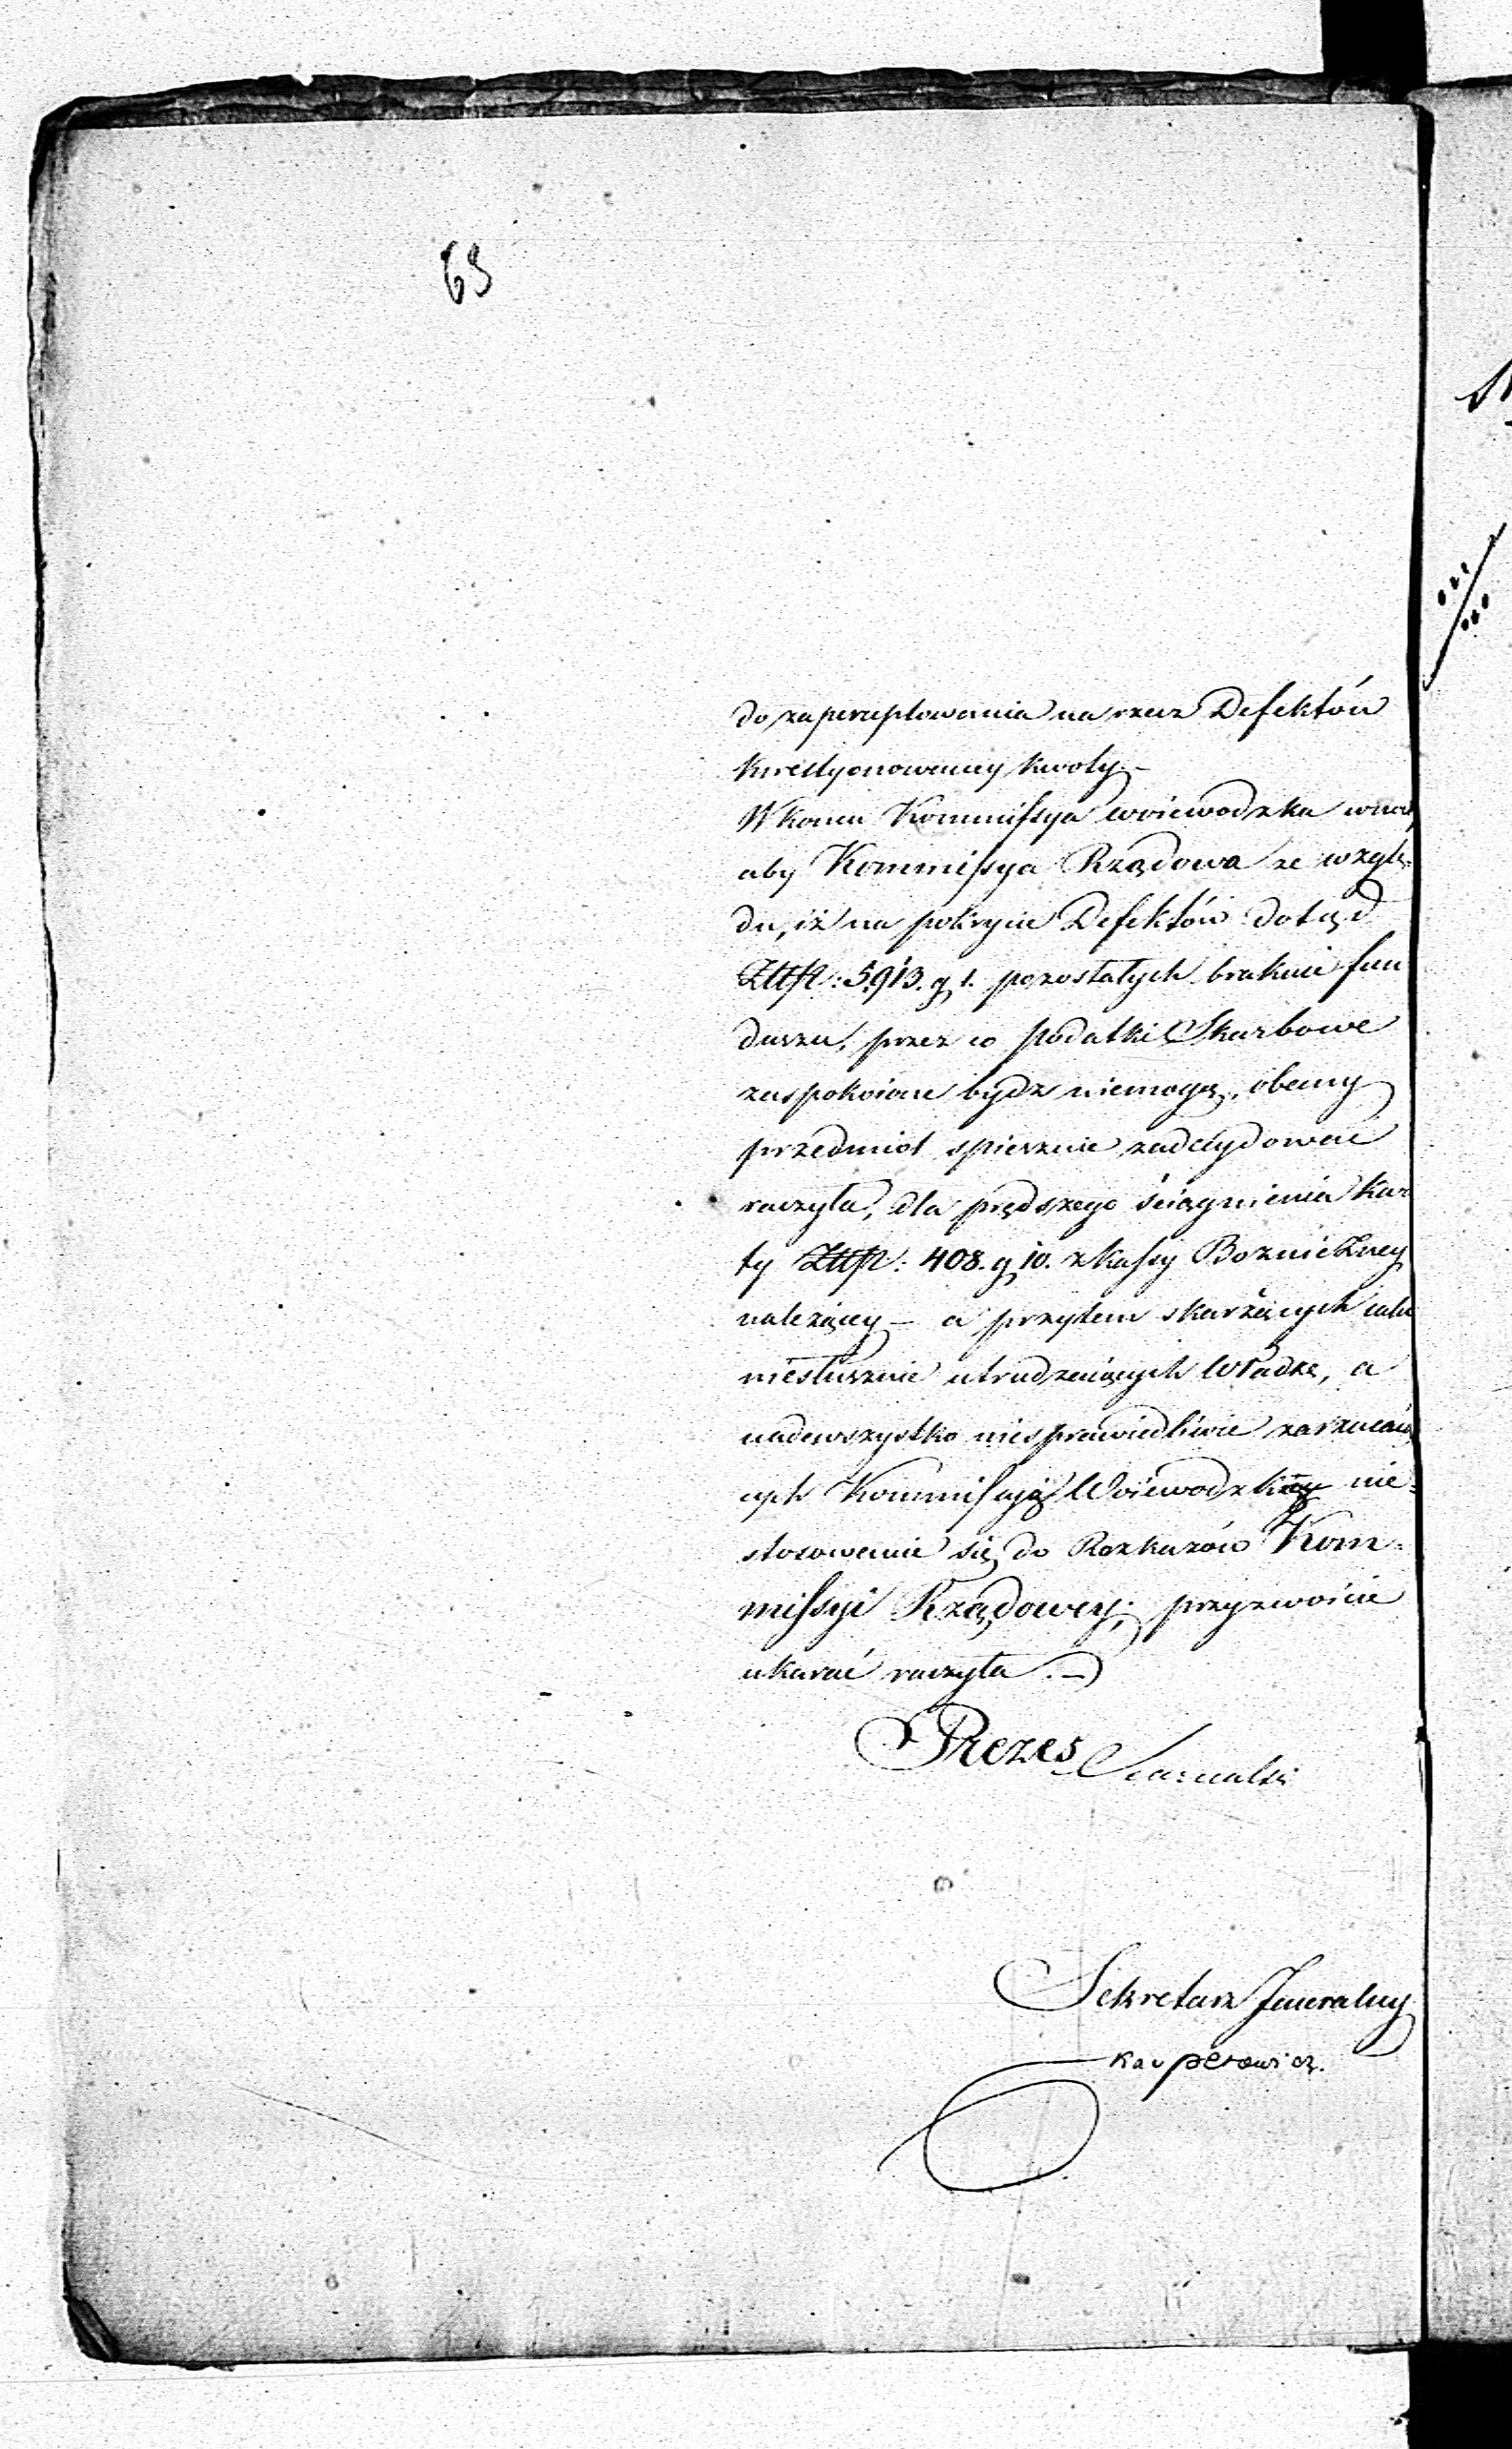 63
do zaperceptowania na rzecz Defektów
kwestyonowaney kwoty. –
W koncu Kommissya woiewodzka wnosi,
aby Kommissya Rządowa ze wzglę-
du, iż na pokrycie Defektów dotąd
Złłp: 5,913. g 1. pozostałych braknie fun
duszu, przez co podatki Skarbowe
zaspokoione bydz niemogą, obecny
przedmiot spiesznie zadecydować
raczyła, dla prędszego ściągnienia kwo
ty Złłp: 408. g 10. z kassy Boznicżney
należącey – a przytem skarżących iako
niesłusznie utrudzaiących Władzę, a
nadewszystko niesprawiedliwie zarzucaią
cych Kommissyią Woiewodzką nie-
stosowanie się do Rozkazów Kom-
missyi Rządowey; przyzwoicie
ukarać raczyła. –
Prezes
Sekretarz Jeneralny